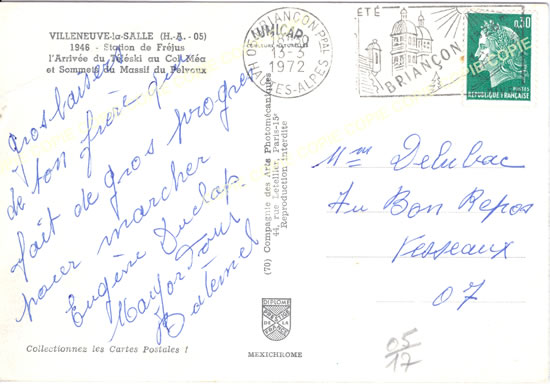 VILLENEUVE-la-SALLE (H.-A. - 05)
1946 - Station de Fréjus
l'Arrivée du Téléski au Col Méa
et Sommets du Massif du Pelvoux
Gros baisers
de ton frère qui
fait de gros progrès
pour marcher
Eugène Duclap
Collectionnez les Cartes Postales !
(70) Compagnie des Arts Photomécaniques
44, rue Letellier, Paris-15e
Reproduction interdite
DIPLOME
PRESTIGE
DE LA
FRANCE
MEXICHROME
BRIANÇON Ppal
13-3
1972
HAUTES-ALPES
ÉTÉ
BRIANÇON
0,30
POSTES
REPUBLIQUE FRANÇAISE
Mme Delubac
Au Bon Repos
Vesseaux
07
05
17